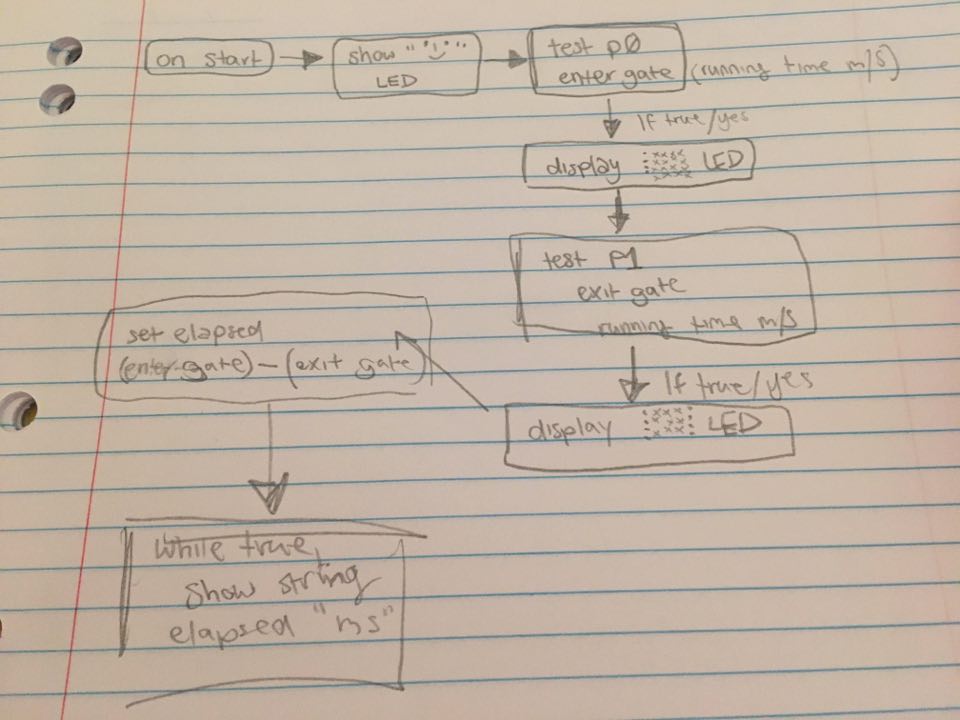 on start
show ":!:"
LED
test p0
enter gate (running time m/s)
If true/yes
display LED
test P1
exit gate
running time m/s
If true/yes
display LED
set elapsed
(enter gate) - (exit gate)
While true,
show string
elapsed "ms"